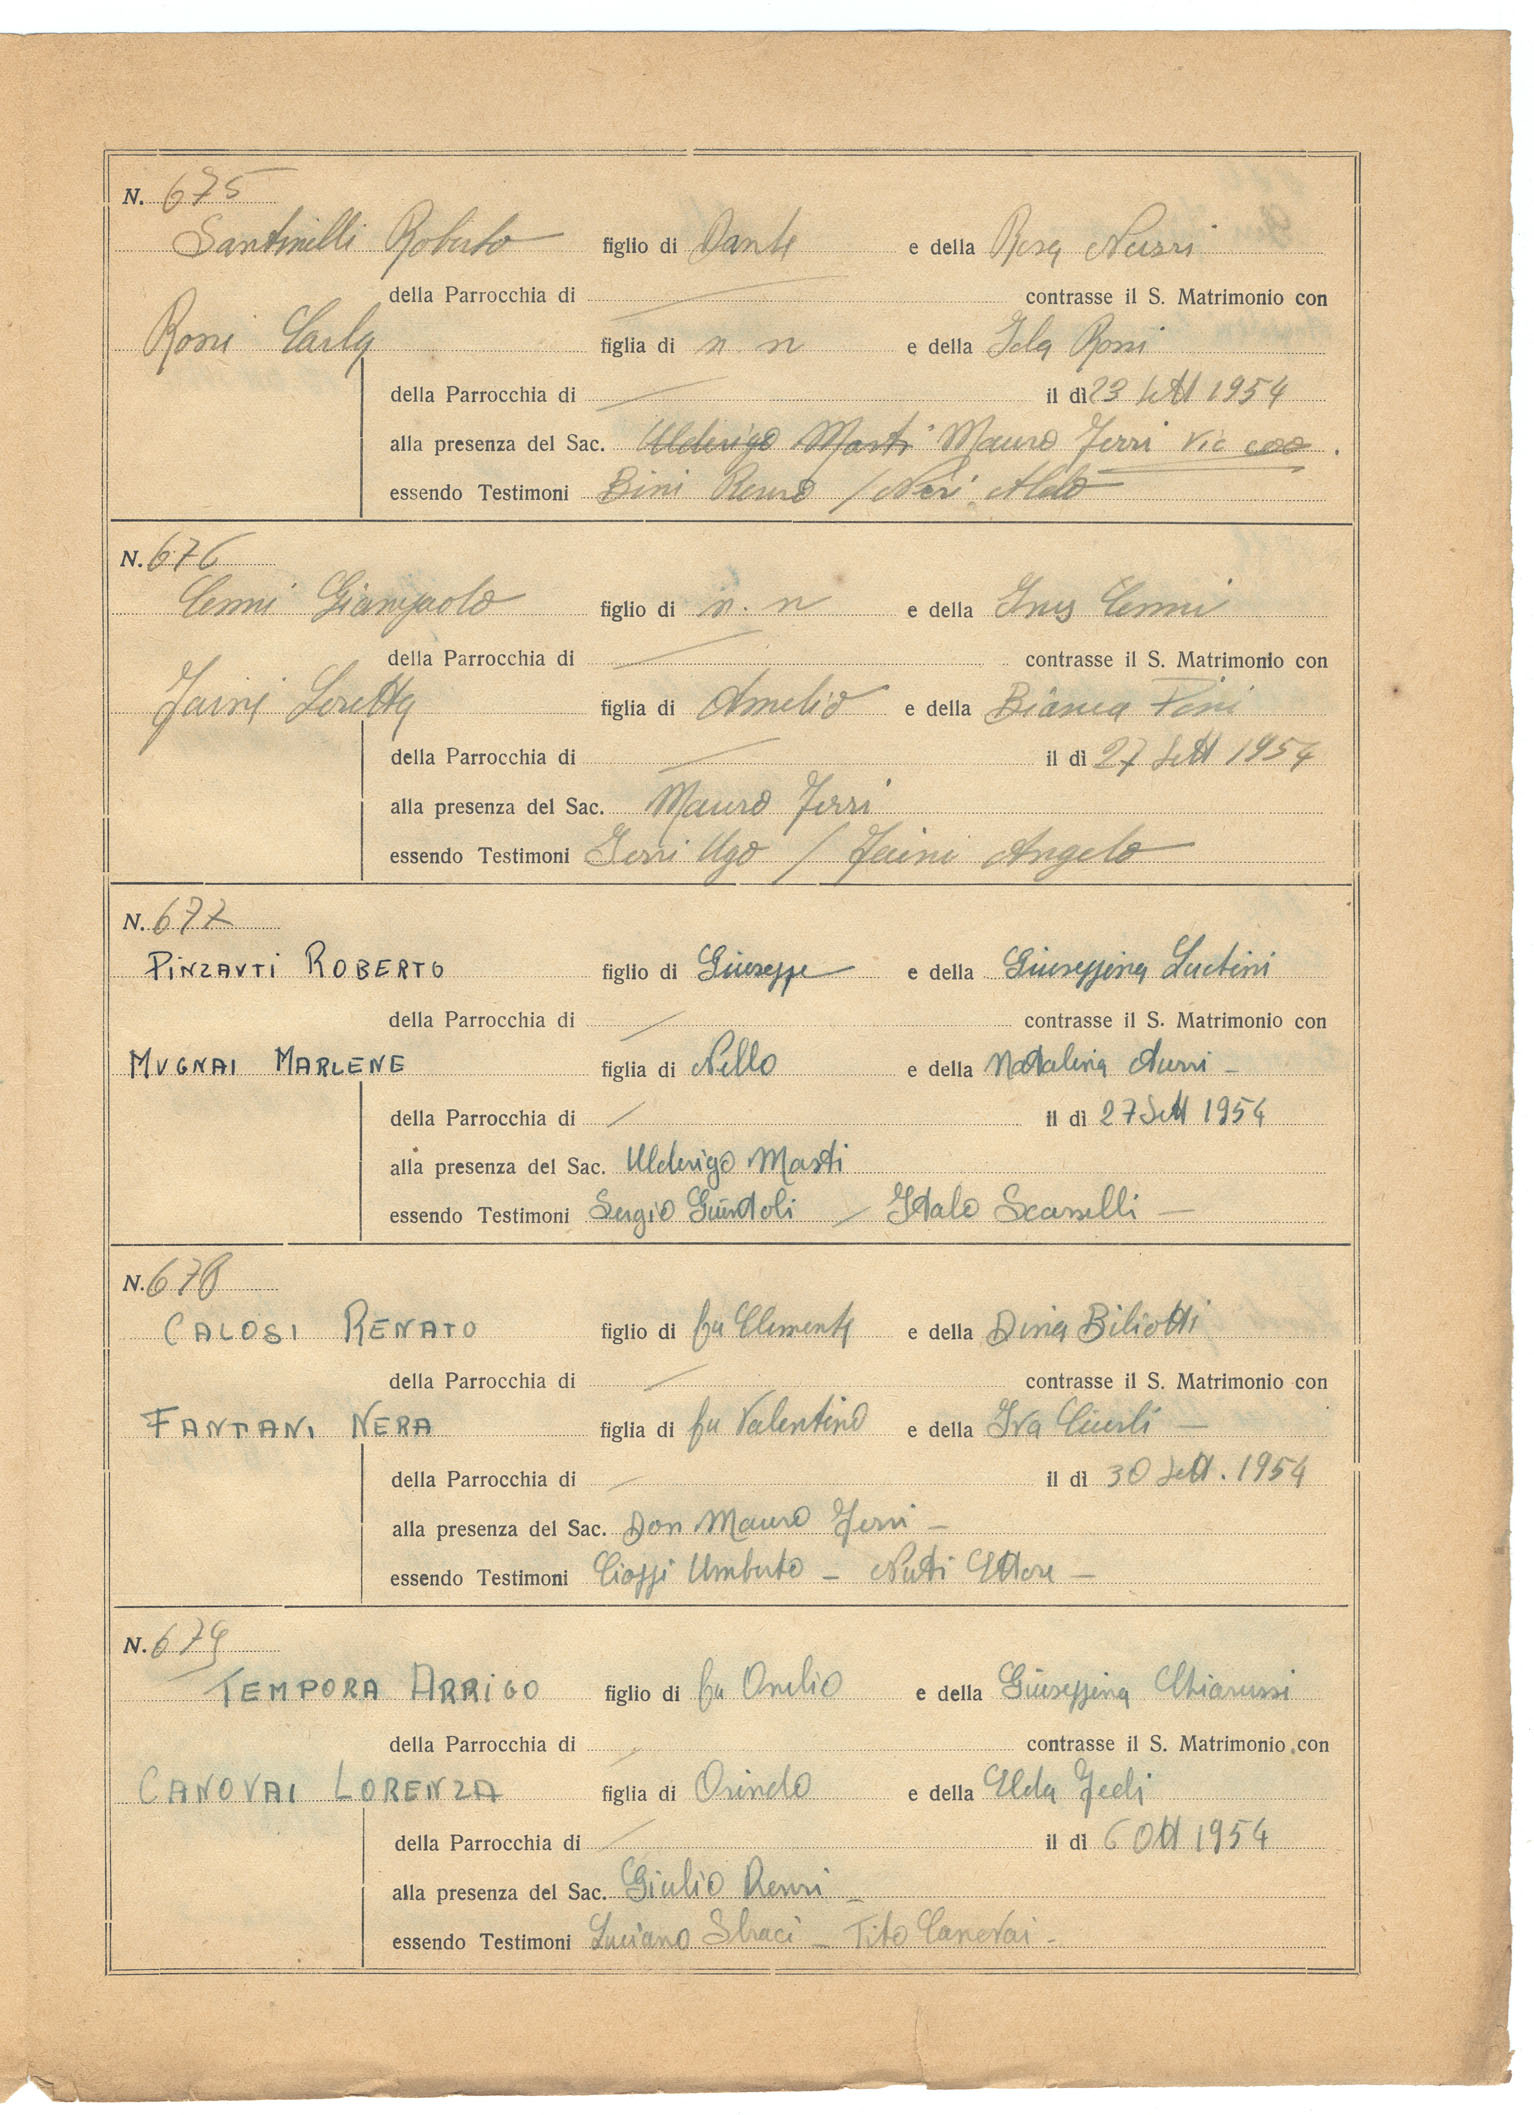 N. 675
Santinelli Roberto figlio di Dante e della Rosa Nussi
della Parrocchia di contrasse il S. Matrimonio con
Rossi Carla figlia di n. n e della Ida Rossi
della Parrocchia di il dì 23 Sett 1954
alla presenza del Sac. Ulderigo Masti Mauro Ferri Vic coo.
essendo Testimoni Bini Renzo / Neri Aldo
N. 676
Cenni Giampaolo figlio di n. n e della Ines Cenni
della Parrocchia di contrasse il S. Matrimonio con
Faini Loretta figlia di Amelio e della Bianca Pini
della Parrocchia di il dì 27 Sett 1954
alla presenza del Sac. Mauro Ferri
essendo Testimoni Ferri Ugo / Faini Angelo
N. 677
PINZAUTI ROBERTO figlio di Giuseppe e della Giuseppina
della Parrocchia di contrasse il S. Matrimonio con
MUGNAI MARLENE figlia di Nello e della Natalina
della Parrocchia di il dì 27 Sett 1954
alla presenza del Sac. Ulderigo Masti
essendo Testimoni Sergio / Italo Scarselli —
N. 678
CALOSI RENATO figlio di fu Clemente e della Dina Biliotti
della Parrocchia di contrasse il S. Matrimonio con
FANTANI NERA figlia di fu Valentino e della Iva Ciurli —
della Parrocchia di il dì 30 Sett. 1954
alla presenza del Sac. Don Mauro Ferri —
essendo Testimoni Cioppi Umberto — Nuti Ettore —
N. 679
TEMPORA ARRIGO figlio di fu Onelio e della Giuseppina Chiarussi
della Parrocchia di contrasse il S. Matrimonio con
CANOVAI LORENZA figlia di Orindo e della Elda Fedi
della Parrocchia di il dì 6 Ott 1954
alla presenza del Sac. Giulio Renzi —
essendo Testimoni Luciano Straci — Tito Canovai —